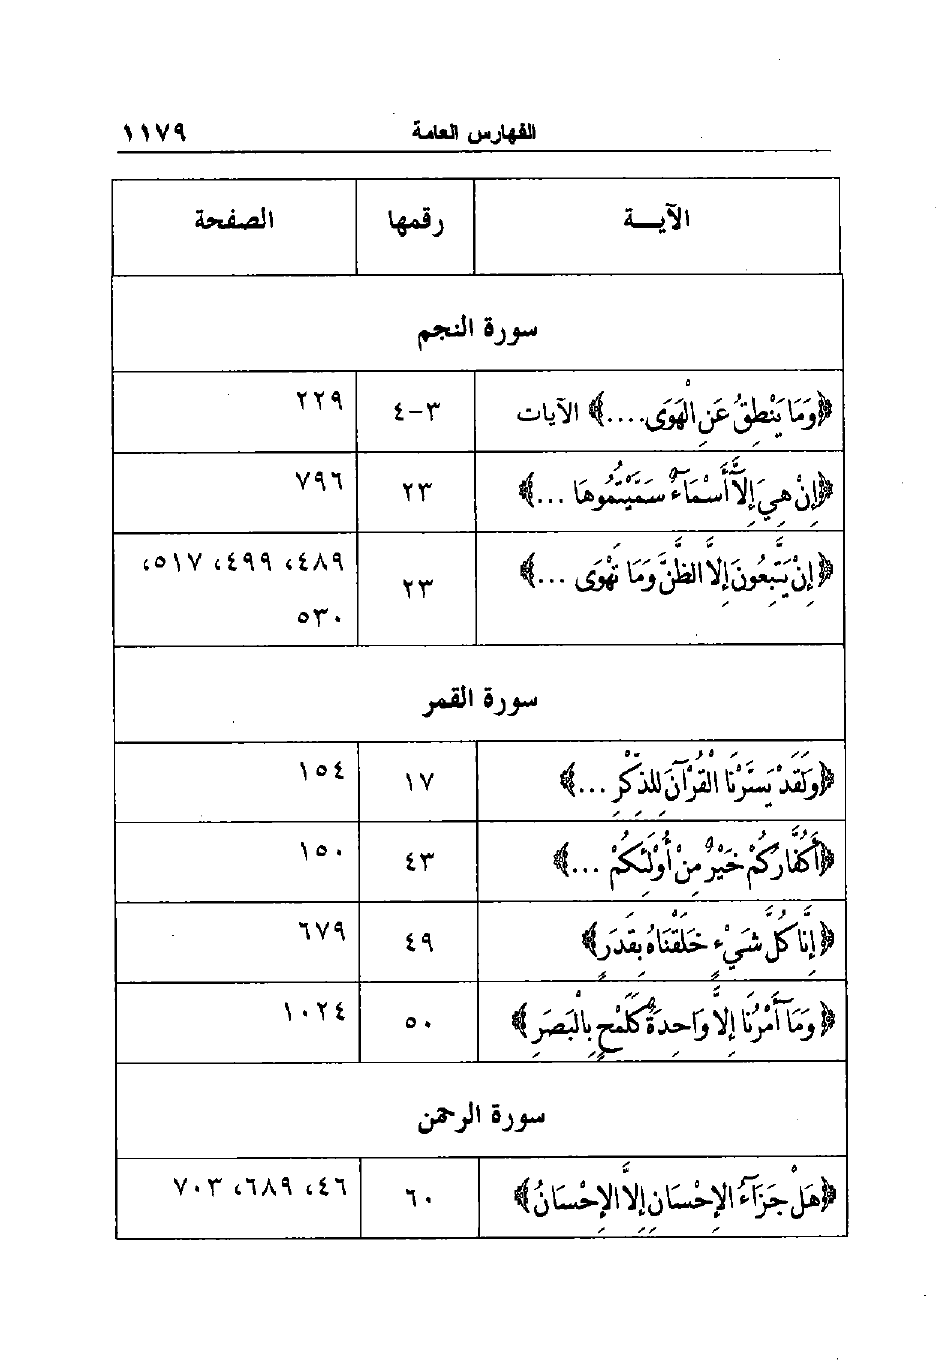 الفهارس العامة ١١٧٩
الآيـــة رقمها الصفحة
سورة النجم
﴿وَمَا يَنْطِقُ عَنِ الْهَوَى....﴾ الآيات ٣-٤ ٢٢٩
﴿إِنْ هِيَ إِلاَّ أَسْمَاءٌ سَمَّيْتُمُوهَا ...﴾ ٢٣ ٧٩٦
﴿إِنْ يَتَّبِعُونَ إِلاَّ الظَّنَّ وَمَا تَهْوَى ...﴾ ٢٣ ٤٨٩، ٤٩٩، ٥١٧،
٥٣٠
سورة القمر
﴿وَلَقَدْ يَسَّرْنَا الْقُرْآنَ لِلذِّكْرِ ...﴾ ١٧ ١٥٤
﴿أَكُفَّارُكُمْ خَيْرٌ مِنْ أُوْلَئِكُمْ ...﴾ ٤٣ ١٥٠
﴿إِنَّا كُلَّ شَيْءٍ خَلَقْنَاهُ بِقَدَرٍ﴾ ٤٩ ٦٧٩
﴿وَمَا أَمْرُنَا إِلاَّ وَاحِدَةٌ كَلَمْحٍ بِالْبَصَرِ﴾ ٥٠ ١٠٢٤
سورة الرحمن
﴿هَلْ جَزَآءُ الإِحْسَانِ إِلاَّ الإِحْسَانُ﴾ ٦٠ ٤٦، ٦٨٩، ٧٠٣